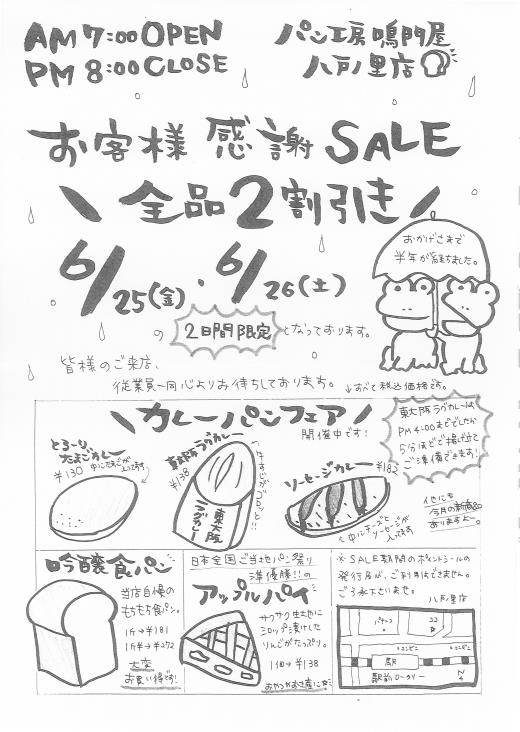 AM 7:00 OPEN
PM 8:00 CLOSE
パン工房鳴門屋
八戸ノ里店
お客様 感謝 SALE
\ 全品2割引き /
おかげさまで
半年が経ちました。
6/25(金)・6/26(土)
の 2日間限定 となっております。
皆様のご来店、
従業員一同心よりお待ちしております。
↓すべて税込価格です。
\カレーパンフェア/
開催中です!
東大阪ラグカレーは
PM4:00まででしたら
5分ほどで揚げ立て
ご準備できます!
とろ〜り
たまごカレー
¥130
中にたまごが
入ってます
東大阪ラグカレー
¥138
東大阪
ラグカレー
ソーセージカレー
¥182
中にチーズと
ソーセージが
入ってます
他にも
今月の新商品
ありますよ〜。
吟醸食パン
当店自慢の
もちもち食パン。
1斤→¥181
1斤半→¥272
大変
お買い得です!
日本全国ご当地パン祭り
準優勝!!の
アップルパイ
サクサク生地に
シロップ漬けした
りんごがたっぷり。
1個→¥138
おやつやお土産に
※SALE期間のポイントシールの
発行及び、ご利用はできません。
ご了承下さいませ。
八戸ノ里店
パチンコ
ココ
コンビニ
コンビニ
駅
駅前ロータリー
N